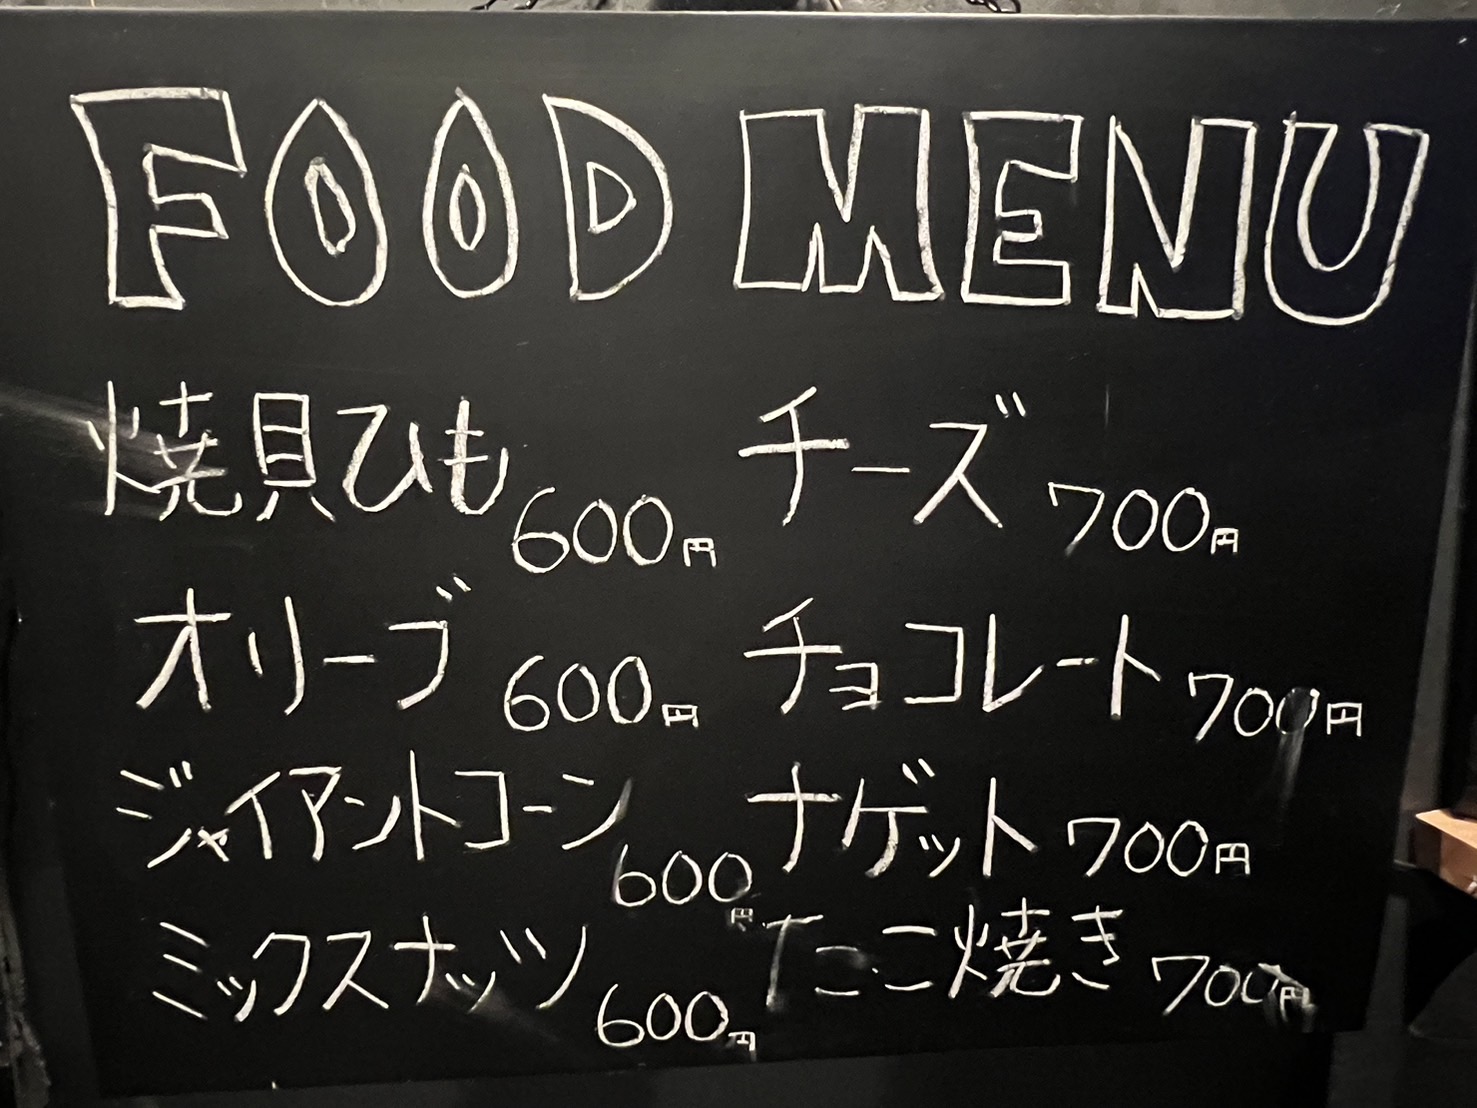 FOOD MENU
焼貝ひも 600円
チーズ 700円
オリーブ 600円
チョコレート 700円
ジャイアントコーン 600円
ナゲット 700円
ミックスナッツ 600円
たこ焼き 700円